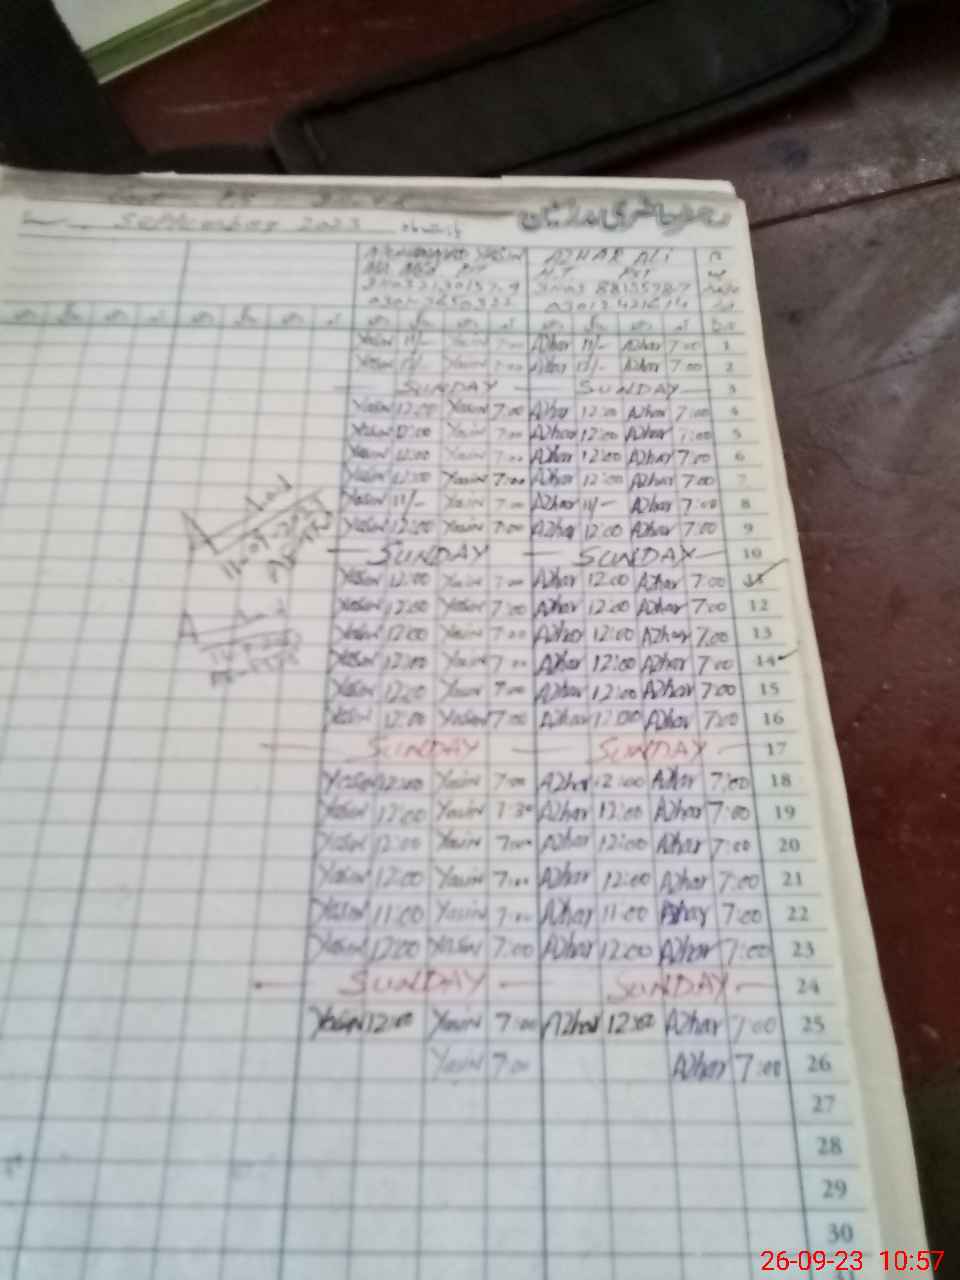 September 2023
MUHAMMAD YASIN AZHAR ALI
Yasin 11/- Yasin 7:00 Azhar 11/- Azhar 7:00 1
Yasin 12/- Yasin 7:00 Azhar 12/- Azhar 7:00 2
SUNDAY SUNDAY 3
Yasin 12:00 Yasin 7:00 Azhar 12:00 Azhar 7:00 4
Yasin 12:00 Yasin 7:00 Azhar 12:00 Azhar 7:00 5
Yasin 12:00 Yasin 7:00 Azhar 12:00 Azhar 7:00 6
Yasin 12:00 Yasin 7:00 Azhar 12:00 Azhar 7:00 7
Yasin 11/- Yasin 7:00 Azhar 11/- Azhar 7:00 8
Yasin 12:00 Yasin 7:00 Azhar 12:00 Azhar 7:00 9
SUNDAY SUNDAY 10
Yasin 12:00 Yasin 7:00 Azhar 12:00 Azhar 7:00 11
Yasin 12:00 Yasin 7:00 Azhar 12:00 Azhar 7:00 12
Yasin 12:00 Yasin 7:00 Azhar 12:00 Azhar 7:00 13
Yasin 12:00 Yasin 7:00 Azhar 12:00 Azhar 7:00 14
Yasin 12:00 Yasin 7:00 Azhar 12:00 Azhar 7:00 15
Yasin 12:00 Yasin 7:00 Azhar 12:00 Azhar 7:00 16
SUNDAY SUNDAY 17
Yasin 12:00 Yasin 7:00 Azhar 12:00 Azhar 7:00 18
Yasin 12:00 Yasin Azhar 12:00 Azhar 7:00 19
Yasin 12:00 Yasin 7:00 Azhar 12:00 Azhar 7:00 20
Yasin 12:00 Yasin 7:00 Azhar 12:00 Azhar 7:00 21
Yasin 11:00 Yasin 7:00 Azhar 11:00 Azhar 7:00 22
Yasin 12:00 Yasin 7:00 Azhar 12:00 Azhar 7:00 23
SUNDAY SUNDAY 24
Yasin 12:00 Yasin 7:00 Azhar 12:00 Azhar 7:00 25
Yasin 7:00 Azhar 7:00 26
27
28
29
30
26-09-23 10:57